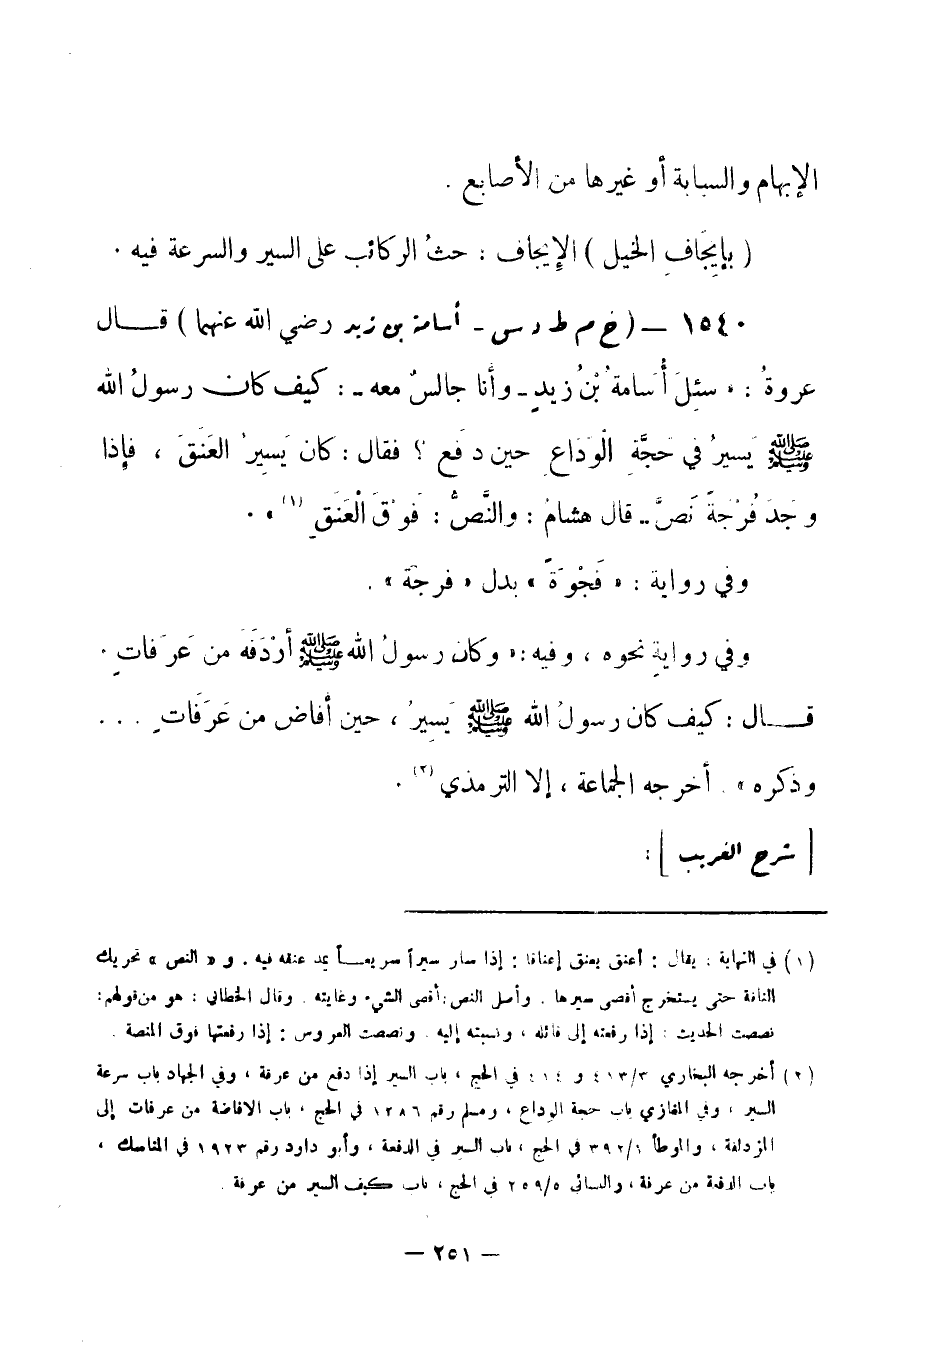 الإبهام والسبابة أو غيرها من الأصابع .
( بإيجَافِ الخيل ) الإيجاف : حثُ الركائب على السير والسرعة فيه .
١٥٤٠ — ( خ م ط د س - أسامة بن زيد رضي الله عنهما ) قــال
عروةُ : « سئِلَ أُسَامةُ بْنُ زيدٍ - وأنا جالسٌ معه - : كيف كان رسولُ الله
ﷺ يَسيرُ في حَجَّةِ الْوَدَاعِ حين دَفع ؟ فقال : كان يَسيرُ العَنَقَ ، فإِذا
وَجَدَ فُرْجَةً نَصَّ .. قال هشامُ : والنَّصُّ : فَوْقَ الْعَنَقِ (١) » .
وفي رواية : « فَجْوَةً » بدل « فرجة » .
وفي روايةٍ نحوه ، وفيه : « وكان رسولُ الله ﷺ أرْدَفَهُ من عَرَفاتٍ .
قـــال : كيف كان رسولُ الله ﷺ يَسيرُ ، حين أفاض من عَرَفَاتٍ ...
وذكره » . أخرجه الجماعة ، إلا الترمذي (٢) .
[ شرح الغريب ] :
(١) في النهاية : يقال : أعنق يعنق إعناقا : إذا سار سيراً سريعـــاً يمد عنقه فيه . و « النص » تحريك
الناقة حتى يستخرج أقصى سيرها . وأصل النص : أقصى الشيء وغايته . وقال الخطابي : هو من قولهم :
نصصت الحديث : إذا رفعته إلى قائله ، ونسبته إليه . ونصصت العروس : إذا رفعتها فوق المنصة .
(٢) أخرجه البخاري ٤١٣/٣ و ٤١٤ في الحج ، باب السير إذا دفع من عرفة ، وفي الجهاد باب سرعة
السير ، وفي المغازي باب حجة الوداع ، ومسلم رقم ١٢٨٦ في الحج ، باب الافاضة من عرفات إلى
المزدلفة ، والموطأ ٣٩٢/١ في الحج ، باب السير في الدفعة ، وأبو داود رقم ١٩٢٣ في المناسك ،
باب الدفعة من عرفة ، والنسائي ٢٥٩/٥ في الحج ، باب كيف السير من عرفة .
— ٢٥١ —